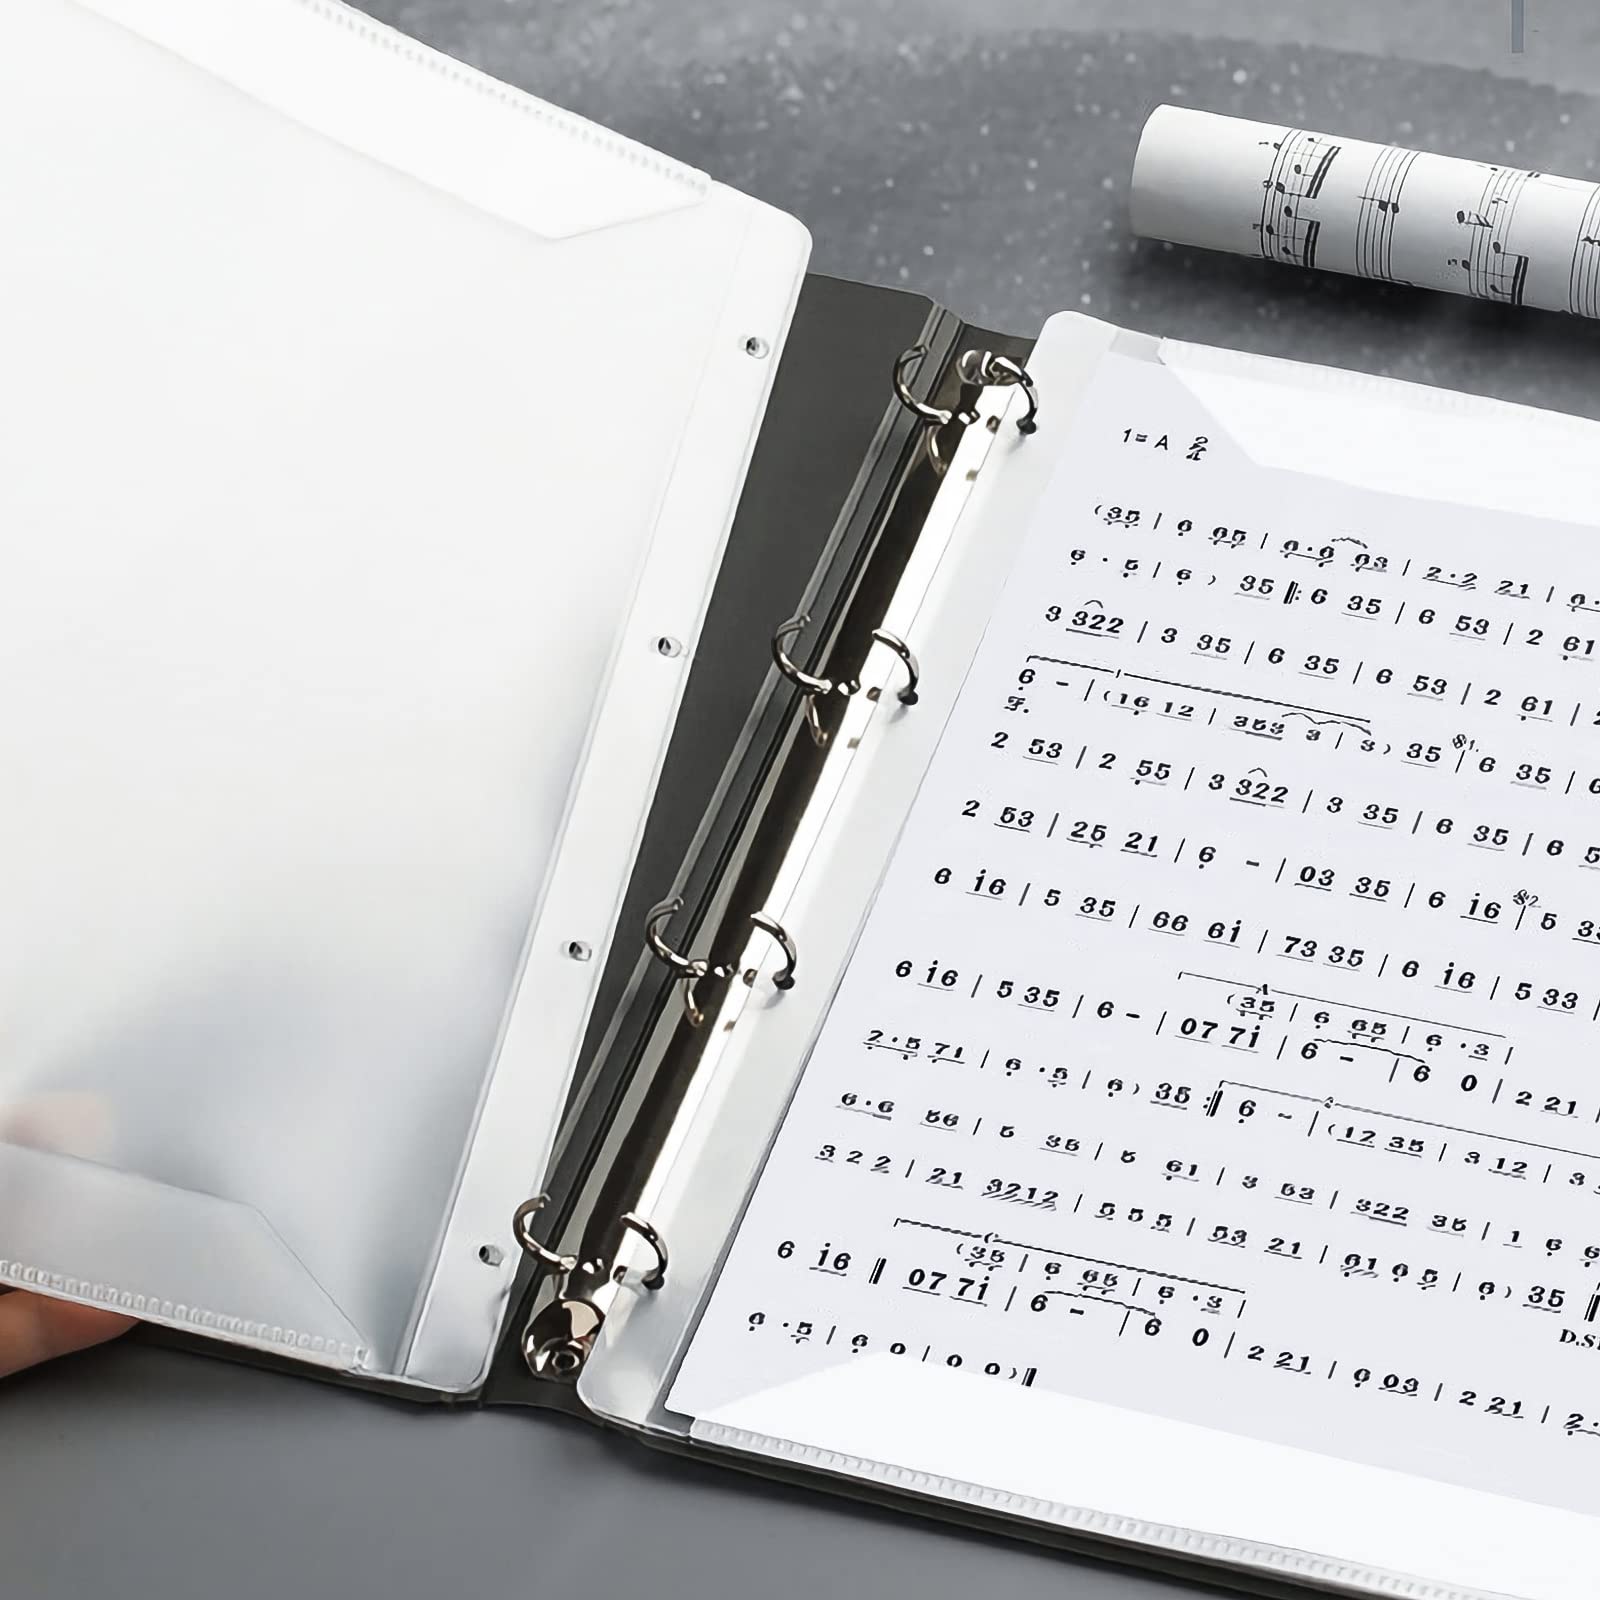 1= A 2/4
(35 | 6 65 | 6·6 63 | 2·2 21 | 6·
6 · 5 | 6 ) 35 ‖: 6 35 | 6 53 | 2 61
3 322 | 3 35 | 6 35 | 6 53 | 2 61 |
6 - | (16 12 | 353 3 | 3) 35 | 6 35 |
2 53 | 2 55 | 3 322 | 3 35 | 6 35 | 6
2 53 | 25 21 | 6 - | 03 35 | 6 i6 | 5
6 i6 | 5 35 | 66 6i | 73 35 | 6 i6 | 5 33 |
(35 | 6 65 | 6 ·3 |
6 i6 | 5 35 | 6 - | 07 7i | 6 - | 6 0 | 2 21 |
2·5 71 | 6 ·5 | 6) 35 :‖ 6 - | (12 35 | 3 12 | 3
6·6 56 | 5 35 | 5 61 | 3 53 | 322 35 | 1 6
3 2 2 | 21 3212 | 5 5 5 | 53 21 | 61 6 5 | 6) 35 ‖
(35 | 6 65 | 6 ·3 |
6 i6 ‖ 07 7i | 6 - | 6 0 | 2 21 | 6 03 | 2 21 | 2·
D.S
6 ·5 | 6 0 | 0 0)‖